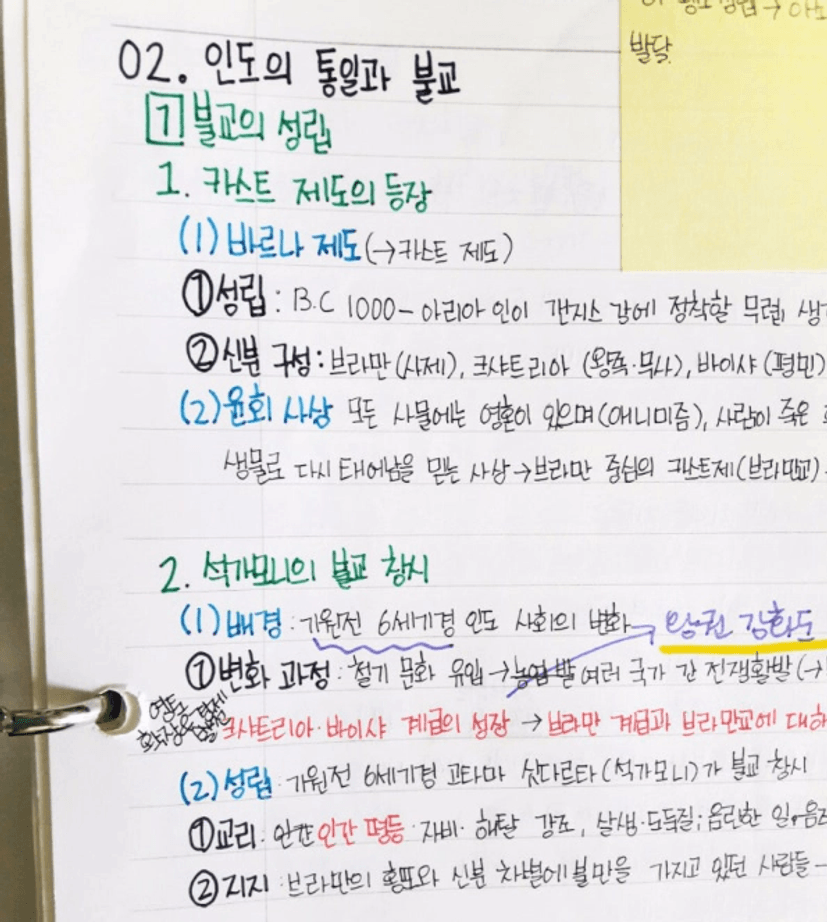 발달
02. 인도의 통일과 불교
1 불교의 성립
1. 카스트 제도의 등장
(1) 바르나 제도 (→카스트 제도)
① 성립 : B.C 1000- 아리아 인이 갠지스 강에 정착할 무렵, 생
② 신분 구성 : 브라만 (사제), 크샤트리아 (왕족·무사), 바이샤 (평민)
(2) 윤회 사상 모든 사물에는 영혼이 있으며 (애니미즘), 사람이 죽은
생물로 다시 태어남을 믿는 사상 → 브라만 중심의 카스트제 (브라만교)
2. 석가모니의 불교 창시
(1) 배경 : 기원전 6세기경 인도 사회의 변화 → 왕권 강화도
① 변화 과정 : 철기 문화 유입 → 여러 국가 간 전쟁활발 (→
크샤트리아·바이샤 계급의 성장 → 브라만 계급과 브라만교에 대하
(2) 성립 · 기원전 6세기경 고타마 싯다르타 (석가모니)가 불교 창시
① 교리 · 인간 평등 · 자비 · 해탈 강조, 살생·도둑질·음란한 일,
② 지지 : 브라만의 횡포와 신분 차별에 불만을 가지고 있던 사람들 -